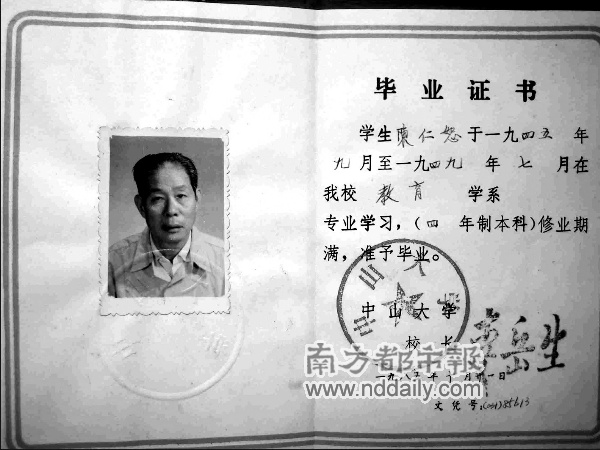 毕业证书
学生陈仁恕于一九四五年
九月至一九四九年七月在
我校教育学系
专业学习，(四年制本科)修业期
满，准予毕业。
中山大学
校长
岳生
南方都市報
www.nddaily.com
文凭号: